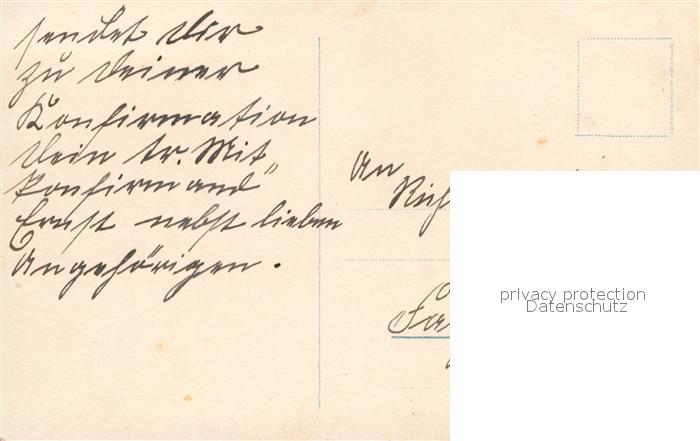 sendet Dir
zu Deiner
Konfirmation
Dein tr. „Mit
konfirmand“
Ernst nebst lieben
Angehörigen.
An
privacy protection
Datenschutz